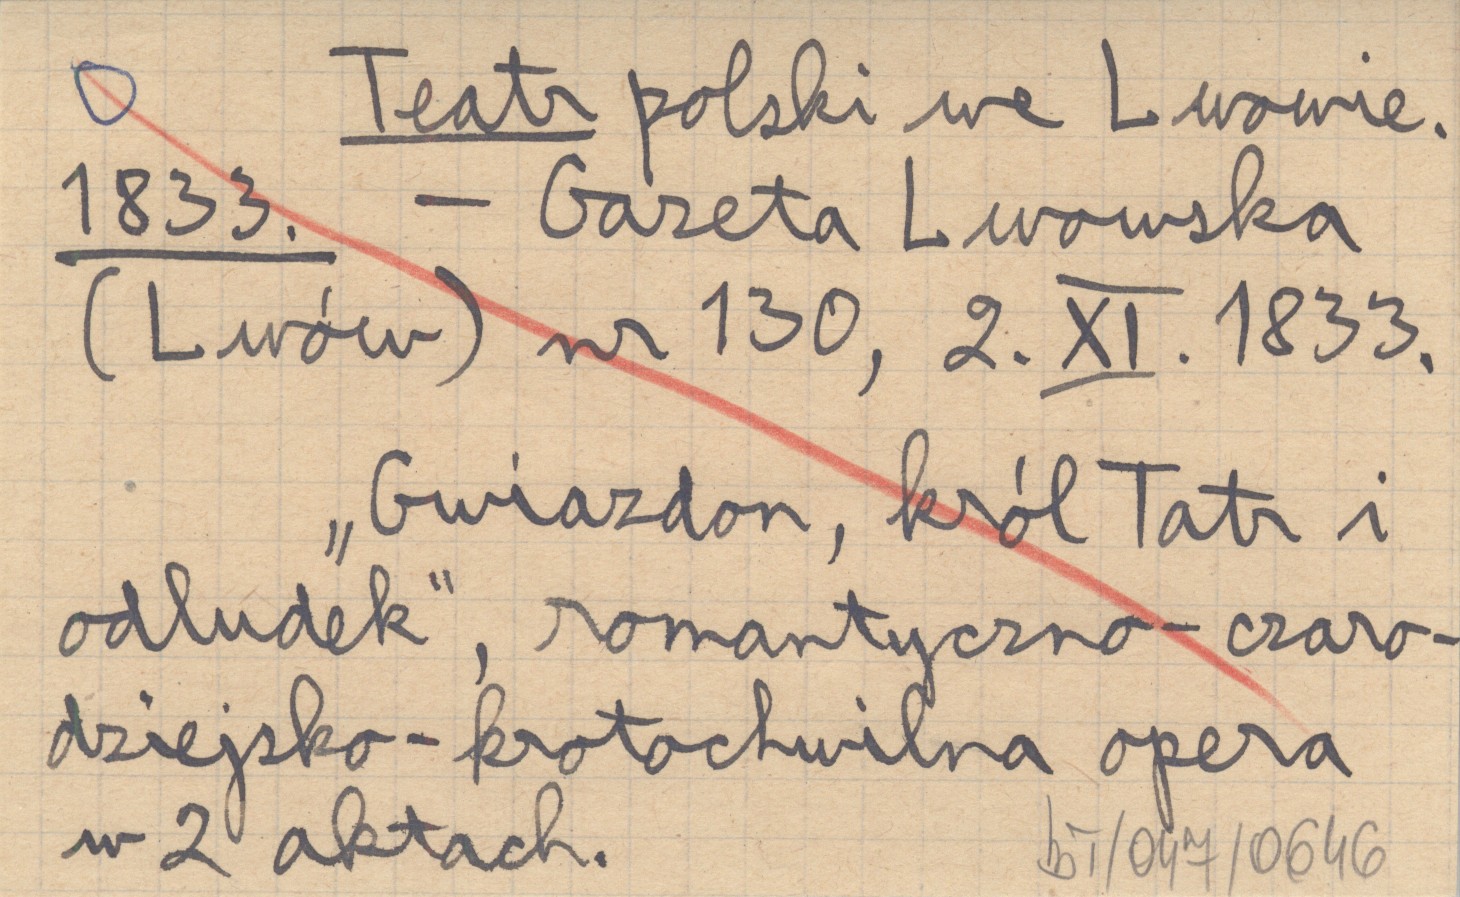 Teatr polski we Lwowie.
1833. – Gazeta Lwowska
(Lwów) nr 130, 2. XI. 1833.
„Gwiazdon, król Tatr i
odludek", romantyczno-czaro-
dziejsko-krotochwilna opera
w 2 aktach.
bT/047/0646